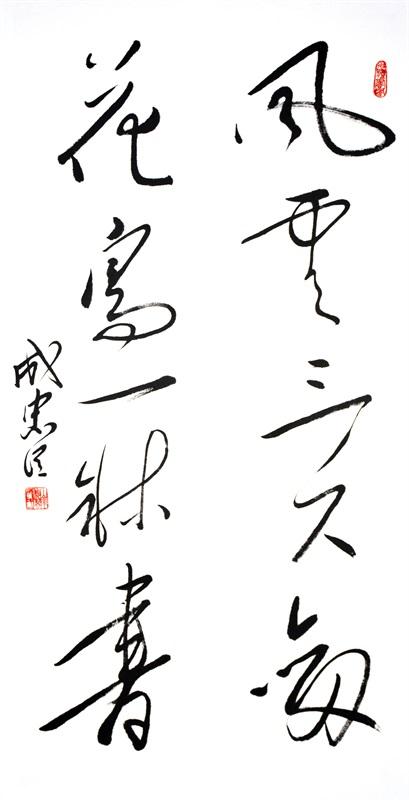 風雲三尺劍
花鳥一牀書
成忠臣